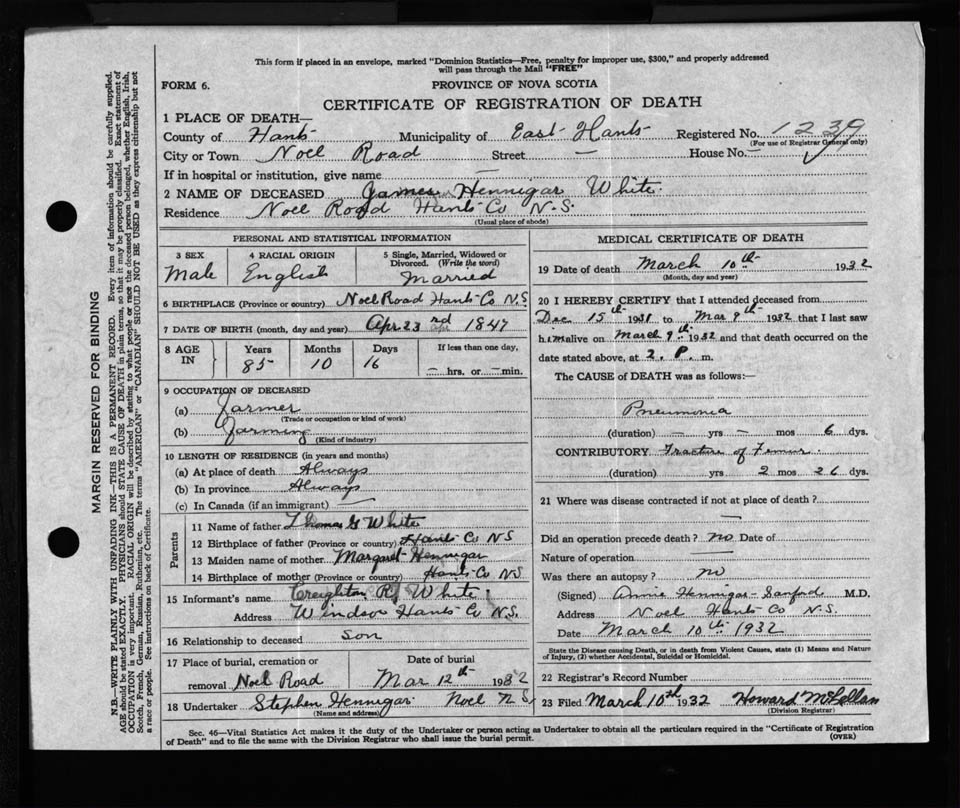 This form if placed in an envelope, marked "Dominion Statistics—Free, penalty for improper use, $300," and properly addressed
will pass through the Mail "FREE"
FORM 6.
PROVINCE OF NOVA SCOTIA
CERTIFICATE OF REGISTRATION OF DEATH
1 PLACE OF DEATH—
County of Hants Municipality of East Hants Registered No. 1239
(For use of Registrar General only)
City or Town Noel Road Street — House No. —
If in hospital or institution, give name —
2 NAME OF DECEASED James Hennigar White.
Residence Noel Road Hants Co N.S.
(Usual place of abode)
PERSONAL AND STATISTICAL INFORMATION
3 SEX 4 RACIAL ORIGIN 5 Single, Married, Widowed or
Divorced. (Write the word)
Male English Married
6 BIRTHPLACE (Province or country) Noel Road Hants Co N.S.
7 DATE OF BIRTH (month, day and year) Apr 23rd 1847
8 AGE IN Years Months Days If less than one day,
85 10 16 — hrs. or — min.
9 OCCUPATION OF DECEASED
(a) Farmer
(Trade or occupation or kind of work)
(b) Farming
(Kind of industry)
10 LENGTH OF RESIDENCE (in years and months)
(a) At place of death Always
(b) In province Always
(c) In Canada (if an immigrant) —
Parents
11 Name of father Thomas G White
12 Birthplace of father (Province or country) Hants Co NS
13 Maiden name of mother Margaret Hennigar
14 Birthplace of mother (Province or country) Hants Co N.S
15 Informant's name Creighton R. White.
Address Windsor Hants Co N.S.
16 Relationship to deceased son
17 Place of burial, cremation or Date of burial
removal Noel Road Mar 12th 1932
18 Undertaker Stephen Hennigar Noel N S
(Name and address)
MEDICAL CERTIFICATE OF DEATH
19 Date of death March 10th 1932
(Month, day and year)
20 I HEREBY CERTIFY that I attended deceased from
Dec 15th 1931 to Mar 9th 1932 that I last saw
him alive on March 9th 1932 and that death occurred on the
date stated above, at 2. P. m.
The CAUSE of DEATH was as follows:—
Pneumonia
(duration) — yrs — mos 6 dys.
CONTRIBUTORY Fracture of Femur
(duration) yrs 2 mos 26 dys.
21 Where was disease contracted if not at place of death?
—
Did an operation precede death? no Date of
Nature of operation —
Was there an autopsy? no
(Signed) Annie Hennigar-Sanford M.D.
Address Noel Hants Co N.S.
Date March 10th 1932
State the Disease causing Death, or in death from Violent Causes, state (1) Means and Nature
of Injury, (2) whether Accidental, Suicidal or Homicidal.
22 Registrar's Record Number
23 Filed March 10th 1932 Howard McLellan
(Division Registrar)
Sec. 46—Vital Statistics Act makes it the duty of the Undertaker or person acting as Undertaker to obtain all the particulars required in the "Certificate of Registration
of Death" and to file the same with the Division Registrar who shall issue the burial permit.
(OVER)
MARGIN RESERVED FOR BINDING
N.B.—WRITE PLAINLY WITH UNFADING INK—THIS IS A PERMANENT RECORD. Every item of information should be carefully supplied.
AGE should be stated EXACTLY. PHYSICIANS should STATE CAUSE OF DEATH in plain terms, so that it may be properly classified. Exact statement of
OCCUPATION is very important. RACIAL ORIGIN will be described by stating to what people or race the deceased person belonged, whether English, Irish,
Scotch, French, German, Russian, Ruthenian, etc. The terms "AMERICAN" or "CANADIAN" SHOULD NOT BE USED as they express citizenship but not
a race or people. See instructions on back of Certificate.